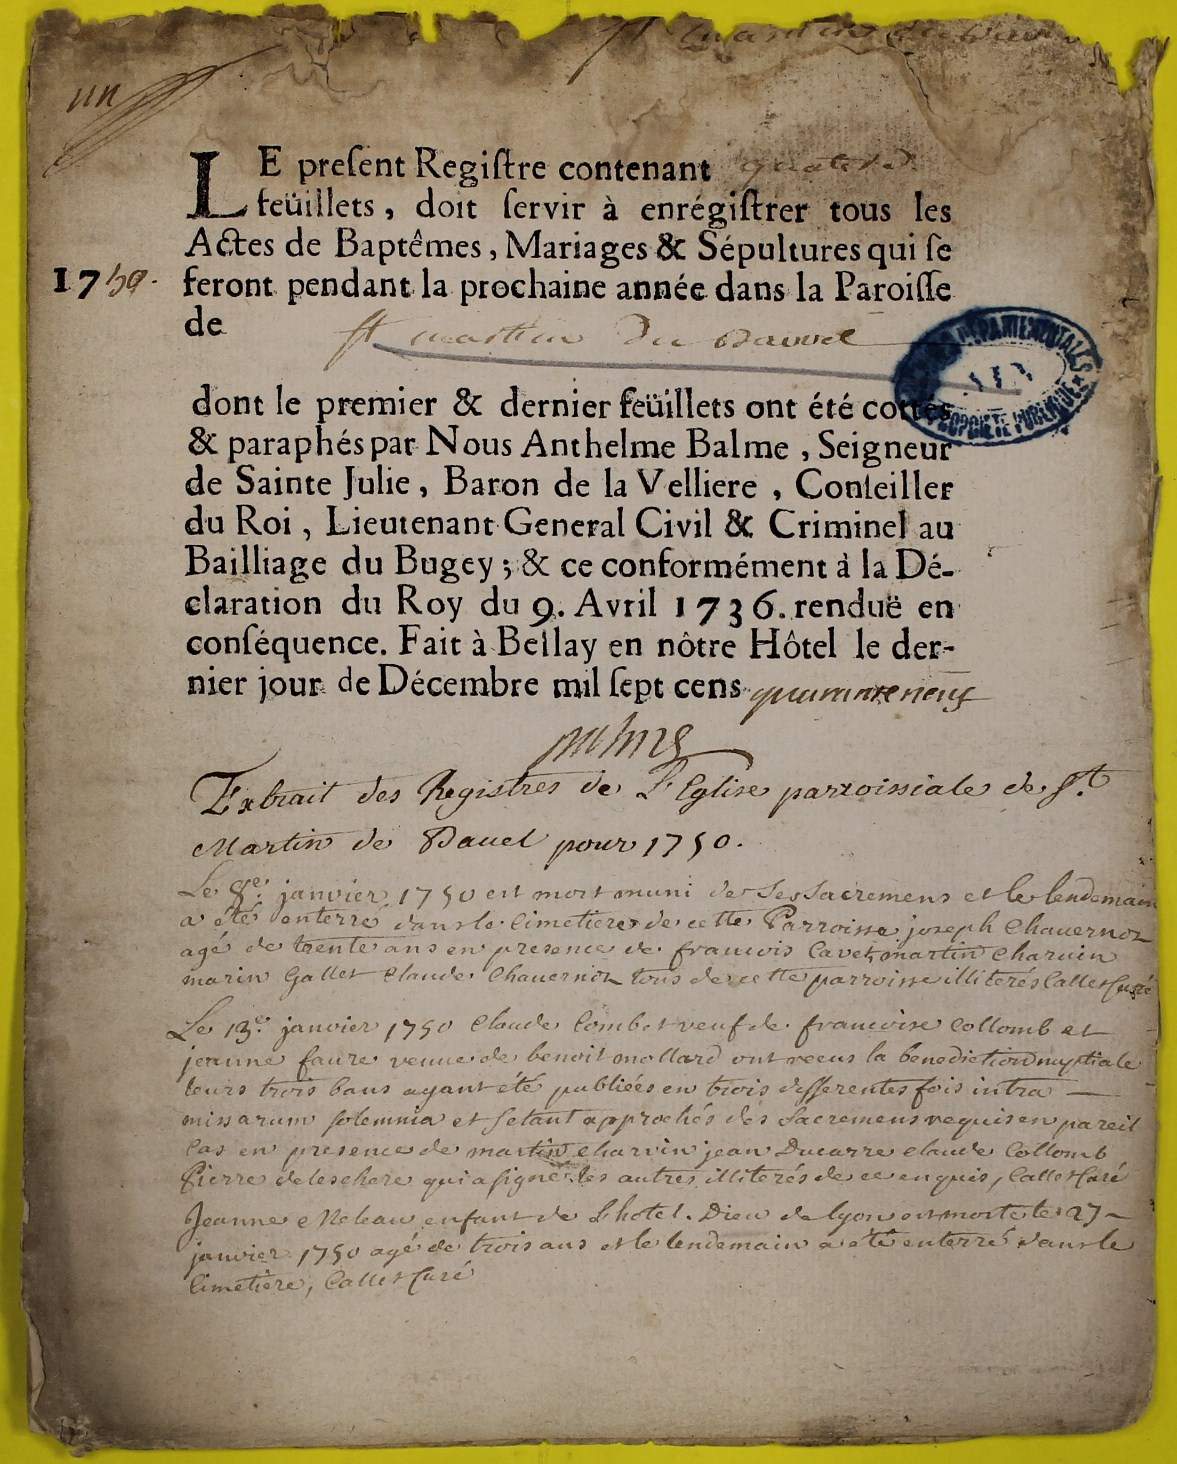 St Martin du
un
LE preſent Regiſtre contenant quatorze
feüillets, doit ſervir à enrégiſtrer tous les
Actes de Baptêmes, Mariages & Sépultures qui ſe
1750. feront pendant la prochaine année dans la Paroiſſe
de St martin du Bavel
DEPARTEMENTALES
AIN
PROPRIÉTÉ PUBLIQUE
dont le premier & dernier feüillets ont été cottés
& paraphés par Nous Anthelme Balme, Seigneur
de Sainte Julie, Baron de la Velliere, Conſeiller
du Roi, Lieutenant General Civil & Criminel au
Bailliage du Bugey; & ce conformément à la Dé-
claration du Roy du 9. Avril 1736. renduë en
conſéquence. Fait à Bellay en nôtre Hôtel le der-
nier jour de Décembre mil ſept cens quarante neuf
Balme
Extrait des Registres de L'Eglise parroissiale de St.
Martin de Bavel pour 1750.
Le 8e. janvier 1750 est mort muni de ses sacremens et le lendemain
a été enterré dans le cimetiere de cette Parroisse joseph Chavernoz
agé de trente ans en presence de francois Cavet, martin charvin
marin Gallet Claude Chavernoz tous de cette parroisse illiterés Callet Curé
Le 13e. janvier 1750 Claude Combet veuf de francoise Collomb et
jeanne faure veuve de benoit mollard ont receus la benediction nuptiale
leurs trois bans ayant été publiées en trois differentes fois intra
missarum solemnia et setant approchés des Sacremens requis en pareil
cas en presence de martin charvin jean Ducarre claude Collomb
Pierre deleschere qui a signé les autres illiterés de ce enquis, Callet Curé
Jeanne enfant de L'hotel-Dieu de lyon est morte le 27
janvier 1750 agé de trois ans et le lendemain a été enterré dans le
Cimetiere, Callet Curé